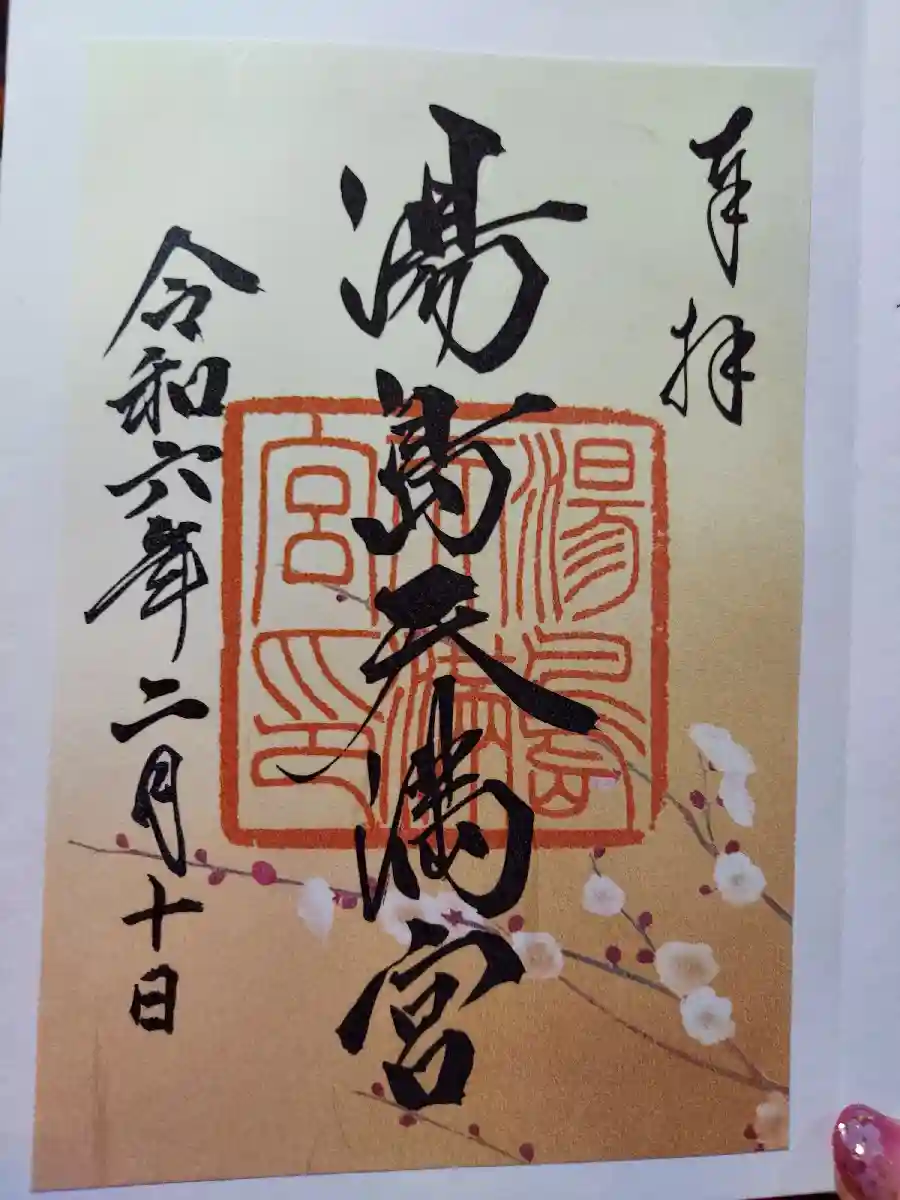 奉拝
湯島天満宮
令和六年二月十日
湯島
天満
宮印